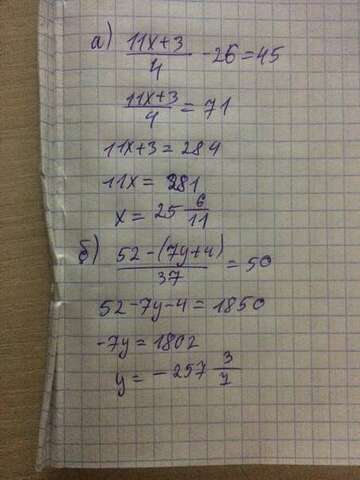 а) (11x+3)/4 - 26 = 45
(11x+3)/4 = 71
11x+3 = 284
11x = 281
x = 25 6/11
б) (52-(7y+4))/37 = 50
52-7y-4 = 1850
-7y = 1802
y = -257 3/7